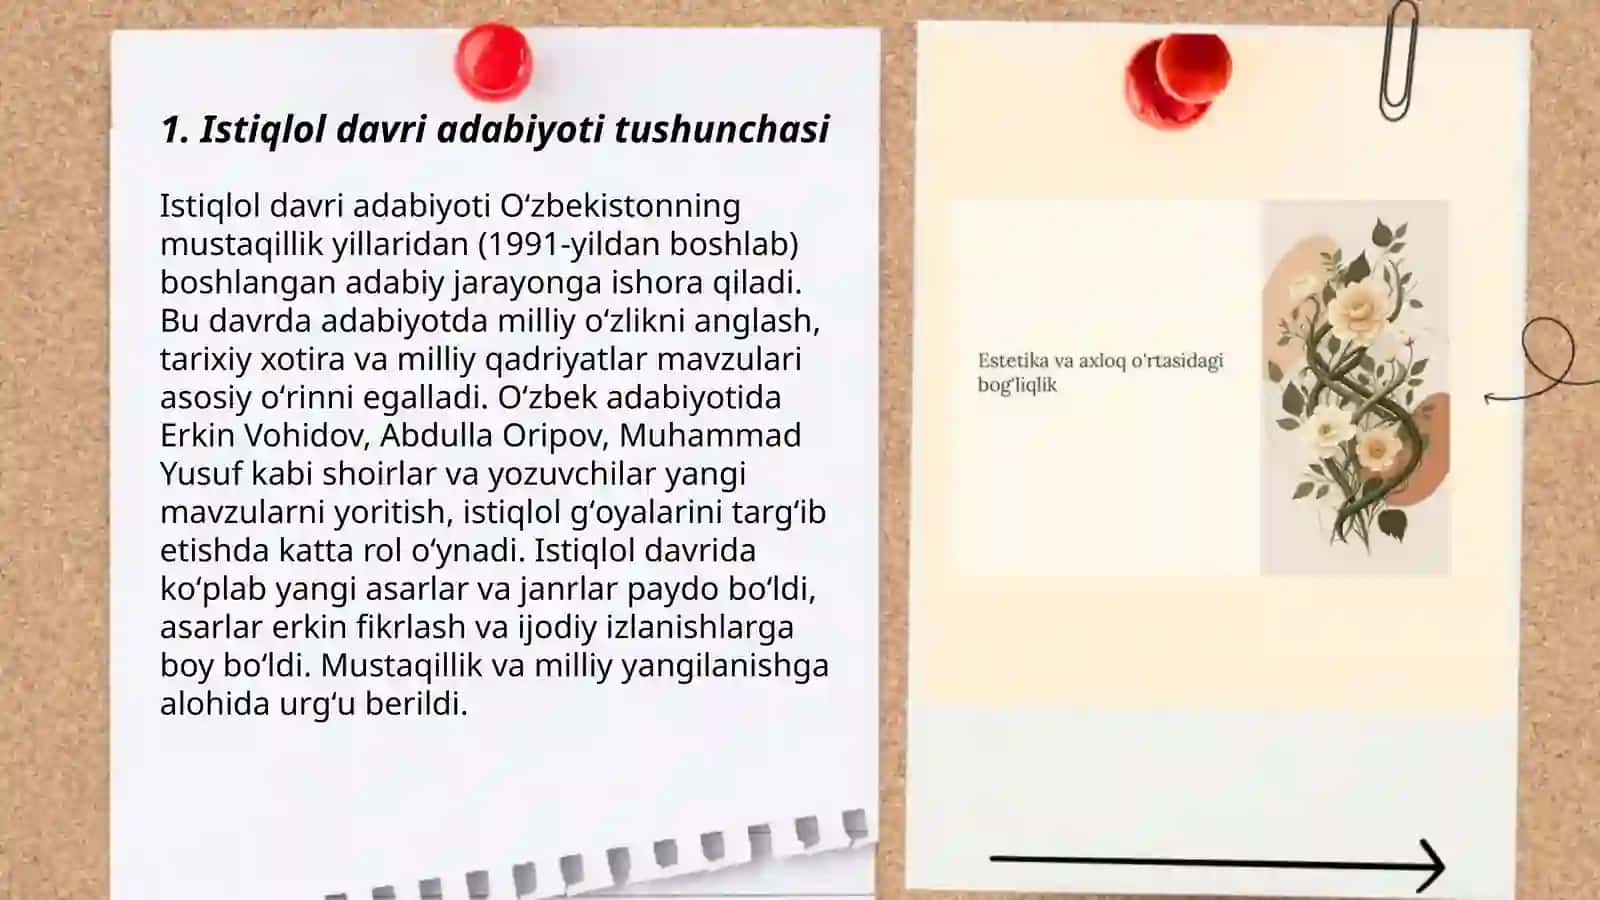 1. Istiqlol davri adabiyoti tushunchasi
Istiqlol davri adabiyoti O‘zbekistonning
mustaqillik yillaridan (1991-yildan boshlab)
boshlangan adabiy jarayonga ishora qiladi.
Bu davrda adabiyotda milliy o‘zlikni anglash,
tarixiy xotira va milliy qadriyatlar mavzulari
asosiy o‘rinni egalladi. O‘zbek adabiyotida
Erkin Vohidov, Abdulla Oripov, Muhammad
Yusuf kabi shoirlar va yozuvchilar yangi
mavzularni yoritish, istiqlol g‘oyalarini targ‘ib
etishda katta rol o‘ynadi. Istiqlol davrida
ko‘plab yangi asarlar va janrlar paydo bo‘ldi,
asarlar erkin fikrlash va ijodiy izlanishlarga
boy bo‘ldi. Mustaqillik va milliy yangilanishga
alohida urg‘u berildi.
Estetika va axloq o'rtasidagi
bog'liqlik